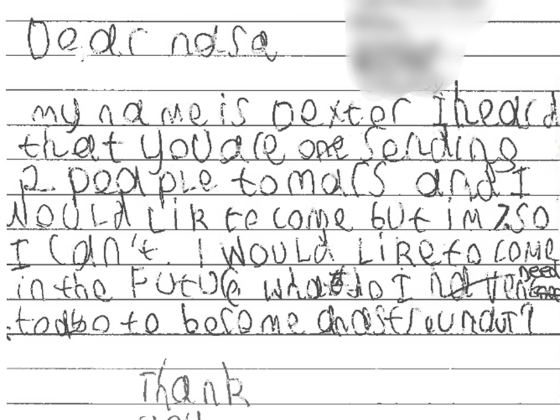 Dear nasa
my name is Dexter I heard
that you are sending
2 people to mars and I
would lik to come but im 7 so
I can't. I would like to come
in the future what do I need
to do to become an astrounaut?
Thank
you